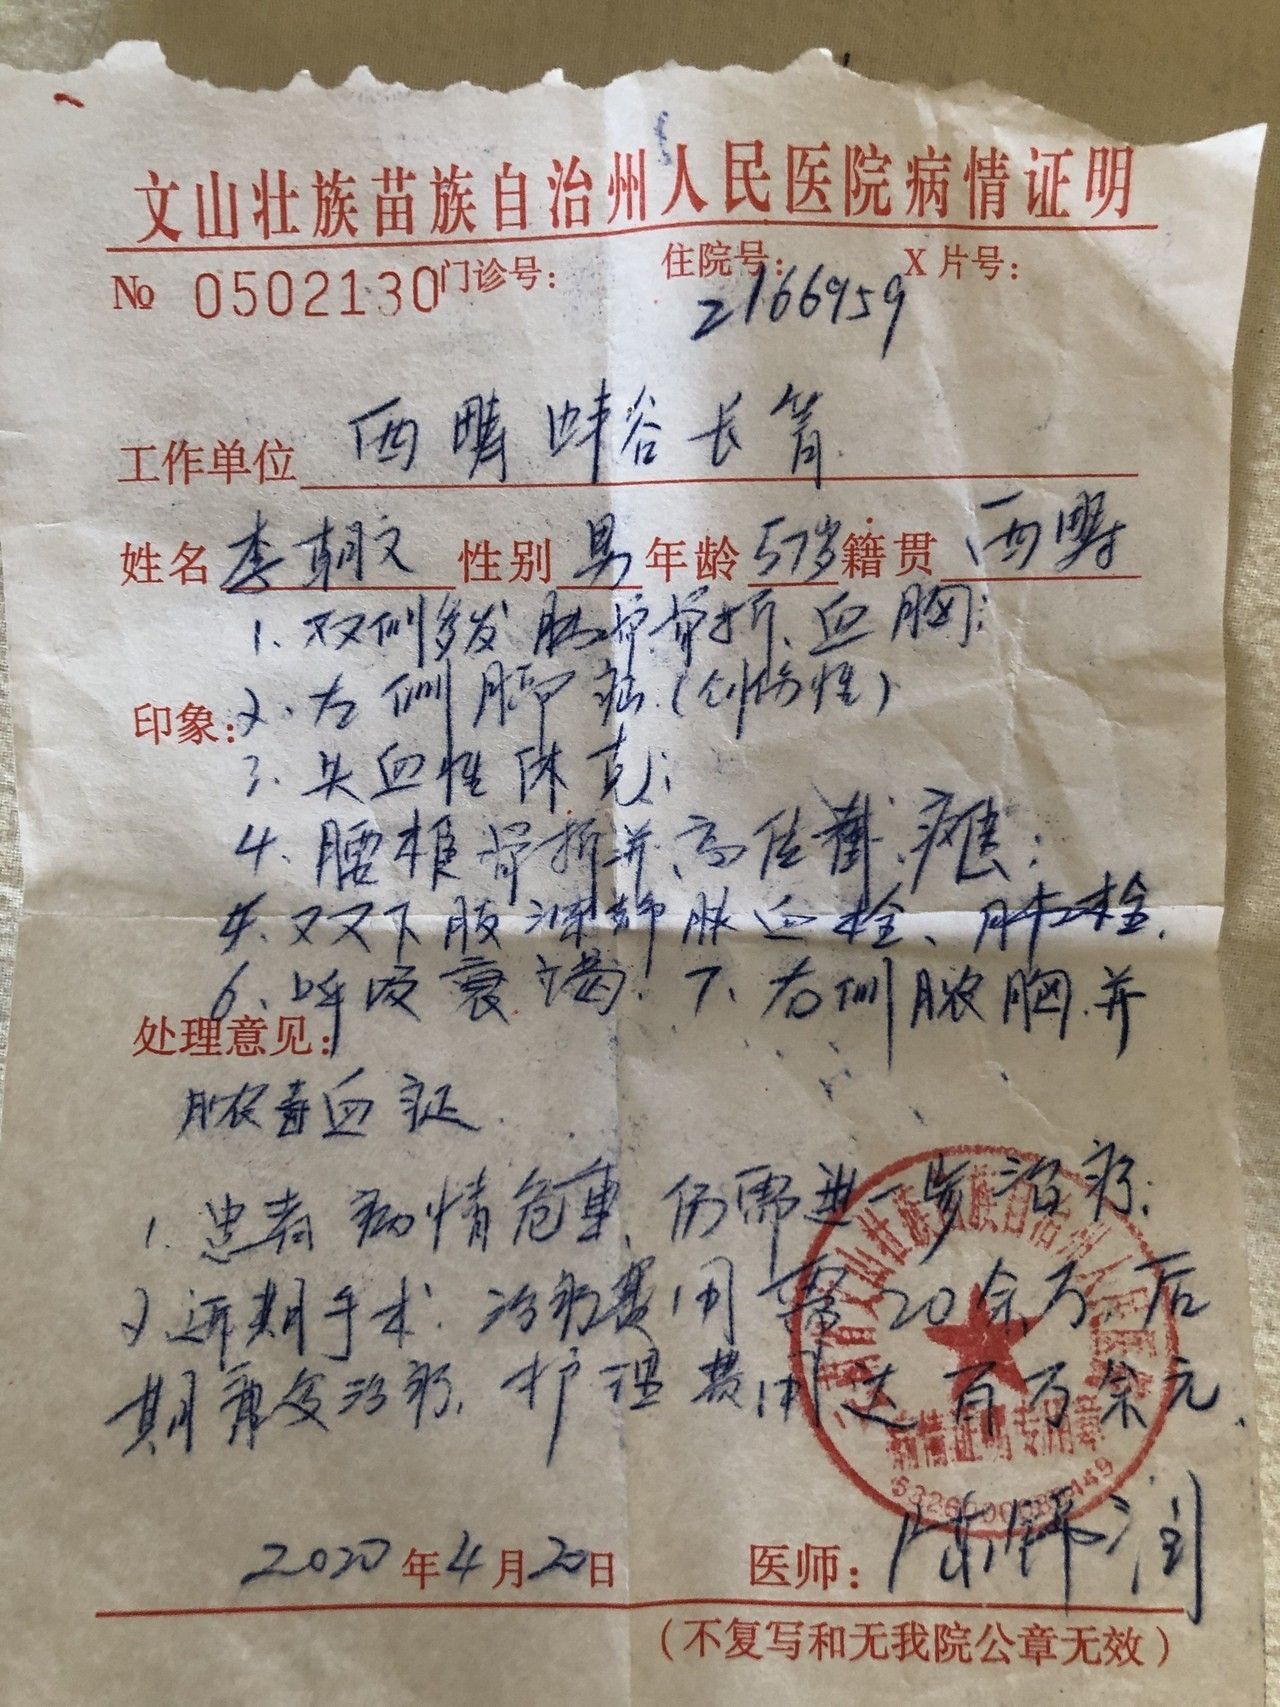 文山壮族苗族自治州人民医院病情证明
№ 0502130 门诊号: 住院号: 2166959 X片号:
工作单位 西畴蚌谷长箐
姓名 李朝文 性别 男 年龄 57岁 籍贯 西畴
1、双侧多发肋骨骨折、血胸;
印象: 2、右侧膈疝(创伤性)
3、失血性休克;
4、腰椎骨折并高位截瘫;
5、双下肢深静脉血栓、肺栓.
6、呼吸衰竭. 7、右侧脓胸并
处理意见:
脓毒血症.
1. 患者病情危重, 仍需进一步治疗;
2. 近期手术. 治疗费用需20余万, 后
期康复治疗. 护理费用达百万余元.
病情证明专用章
2020年4月20日 医师:
(不复写和无我院公章无效)